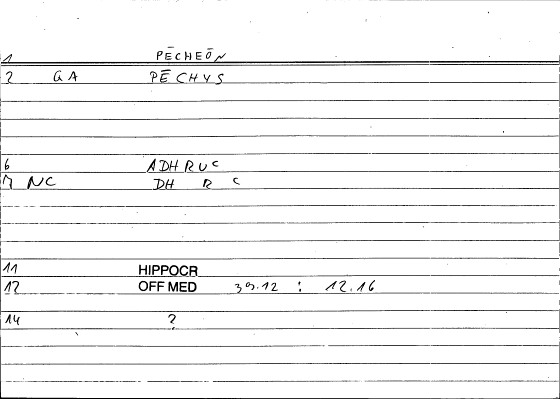 1 PĒCHEŌN
2 GA PĒCHYS
6 ADHRUC
7 NC DH R C
11 HIPPOCR
12 OFF MED 39.12 : 12.16
14 ?